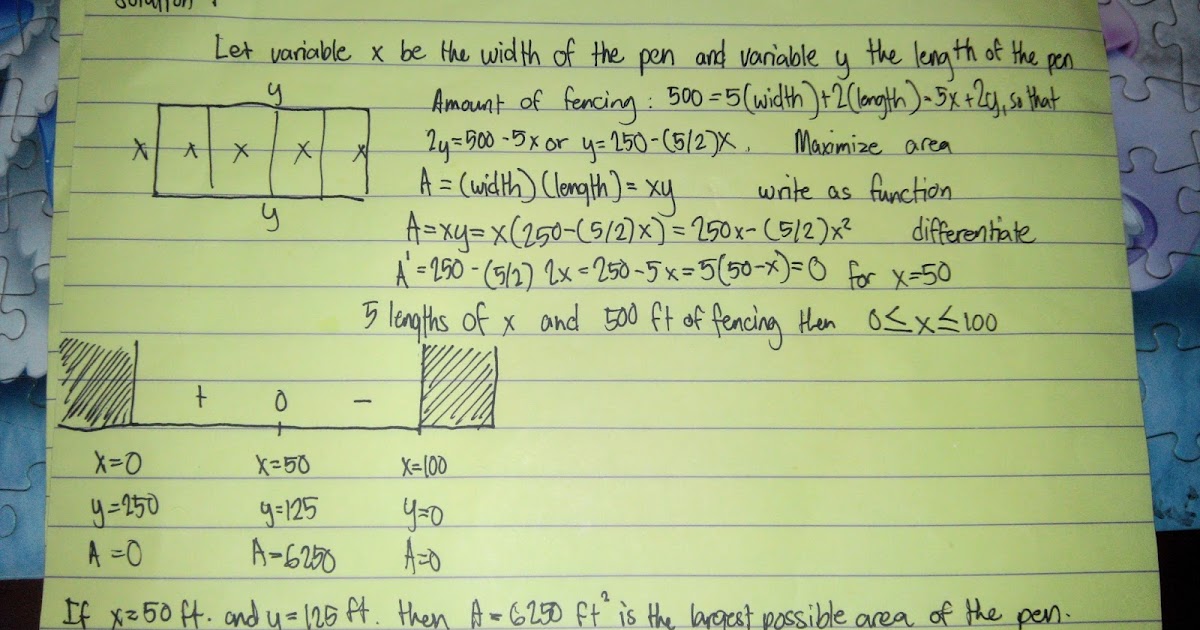 Solution :
Let variable x be the width of the pen and variable y the length of the pen
y
Amount of fencing : 500 = 5(width)+2(length)=5x+2y, so that
x x x x x
2y=500-5x or y=250-(5/2)x. Maximize area
A = (width)(length)= xy write as function
y
A=xy=x(250-(5/2)x)=250x-(5/2)x² differentiate
A'=250-(5/2) 2x=250-5x=5(50-x)=0 for x=50
5 lengths of x and 500 ft of fencing then 0≤x≤100
+ 0 -
x=0 x=50 x=100
y=250 y=125 y=0
A=0 A=6250 A=0
If x=50 ft. and y=125 ft. then A=6250 ft² is the largest possible area of the pen.